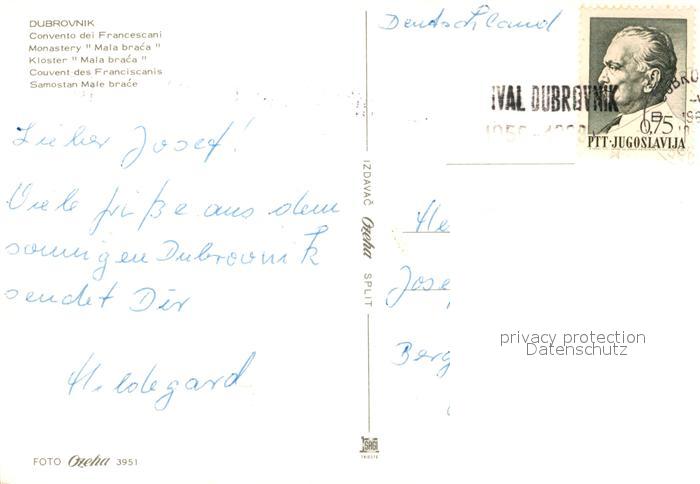 DUBROVNIK
Convento dei Francescani
Monastery "Mala braća"
Kloster "Mala braća"
Couvent des Franciscanis
Samostan Male braće
Deutschland
IVAL DUBROVNIK
0,75
PTT·JUGOSLAVIJA
Lieber Josef!
Viele Grüße aus dem
sonnigen Dubrovnik
sendet Dir
Hildegard
IZDAVAČ Ozeha SPLIT
He
Jose
Berg
privacy protection
Datenschutz
FOTO Ozeha 3951